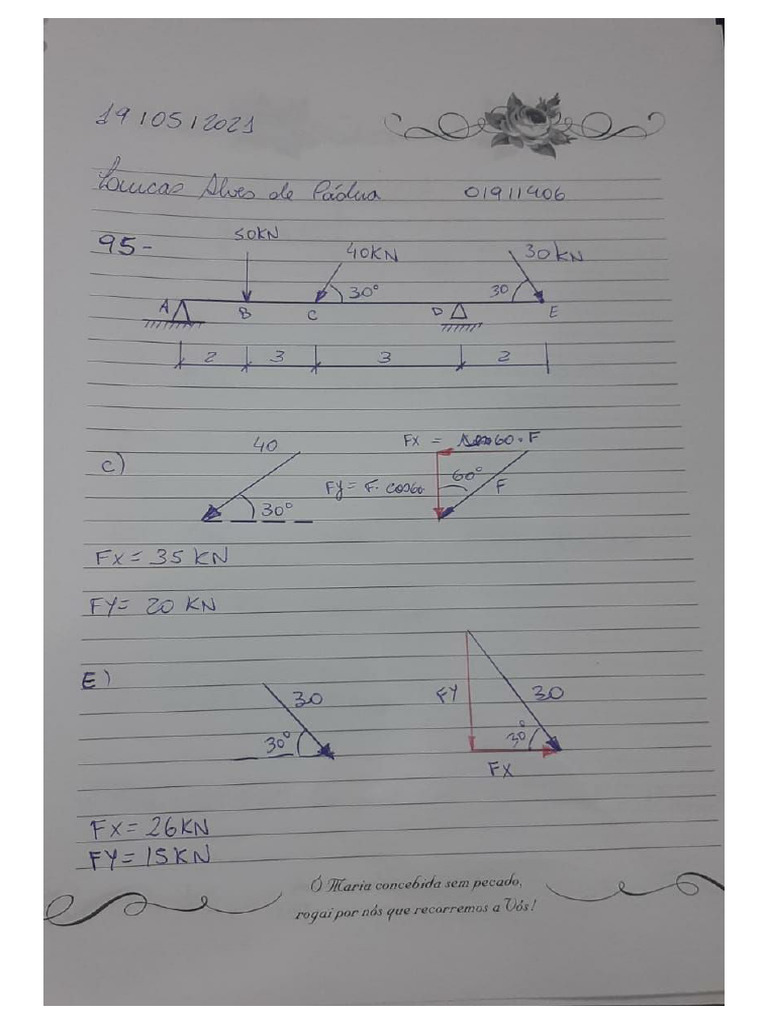 19/05/2021
Loucas Alves de Pádua 01911406
95-
50KN
40KN 30KN
30° 30
A B C D E
2 3 3 2
40 Fx = 60.F
C) 60°
Fy = F. cos60 F
30°
Fx = 35 KN
FY = 20 KN
E) 30 FY 30
30° 30°
FX
Fx = 26KN
FY = 15KN
Ó Maria concebida sem pecado,
rogai por nós que recorremos a Vós!